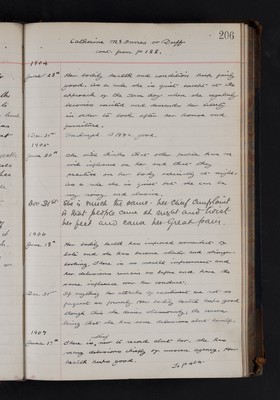 206
Catherine McInnes or Duff
cont. from p 188.
1904
June 28th Her bodily health and condition keep fairly
good. As a rule she is quiet except at the
approach of the term day when she regularly
becomes excited and demands her liberty
in order to look after her house and
furniture.
Dec 31st good.
1905
June 30th She still thinks that other people have
influence on her and that they
practise on her body nightly.
As a rule she is quiet but she can be
very noisy and abusive.
Dec 31st She is much the same: her chief complaint
is that people come at night and twist
her feet and cause her great pain.
1906
June 18th Her bodily health has improved somewhat of
late and she has become and stronger
looking. There is no mental improvement and
her delusions remain as before and have the
same influence over her conduct.
Dec 31st If anything her attacks of excitement are not so
frequent as formerly. Her bodily health keeps good
though this she denies
that she has some
1907
June 17th There is still to record about her. She has
many delusions chiefly of unseen agency. Her
health keeps good.
To p